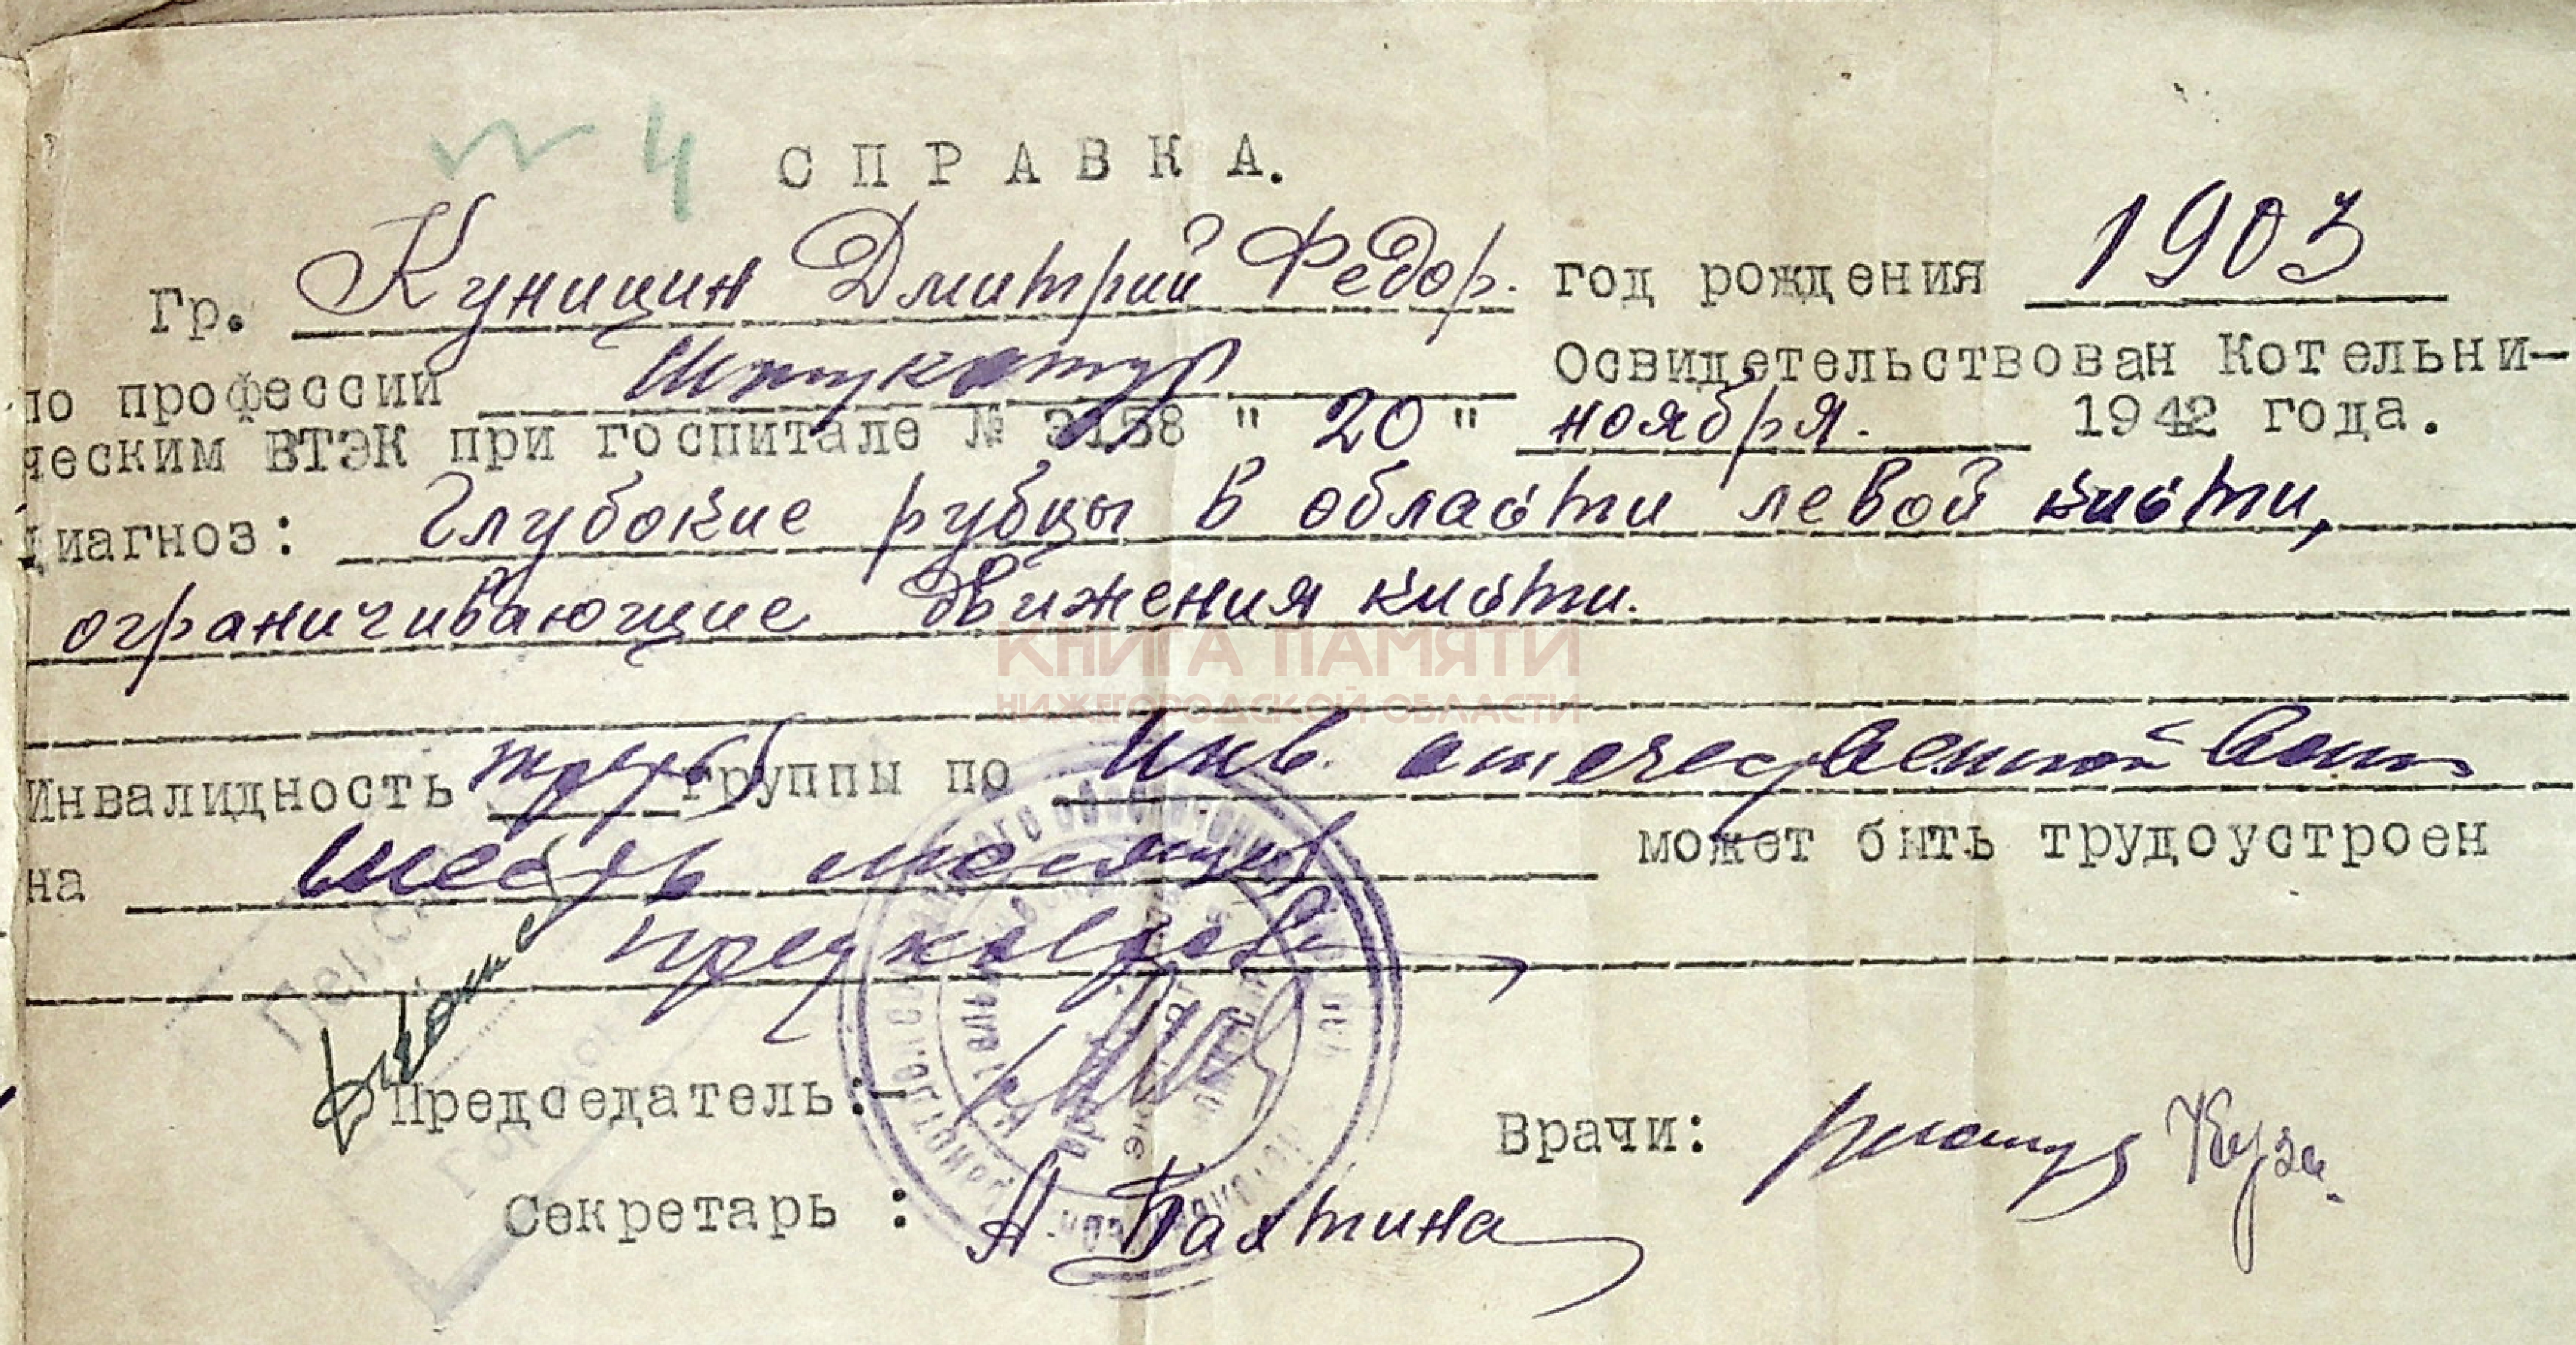 № 4
СПРАВКА.
Гр. Куницин Дмитрий Федор. год рождения 1903
по профессии Штукатур Освидетельствован Котельни-
ческим ВТЭК при госпитале № 3158 " 20 " ноября. 1942 года.
Диагноз: Глубокие рубцы в области левой кисти,
ограничивающие движения кисти.
КНИГА ПАМЯТИ
НИЖЕГОРОДСКОЙ ОБЛАСТИ
Инвалидность третья группы по Инв. отечественной
на шесть месяцев может быть трудоустроен
Председатель:-
Врачи:
Секретарь : А. Бахтина